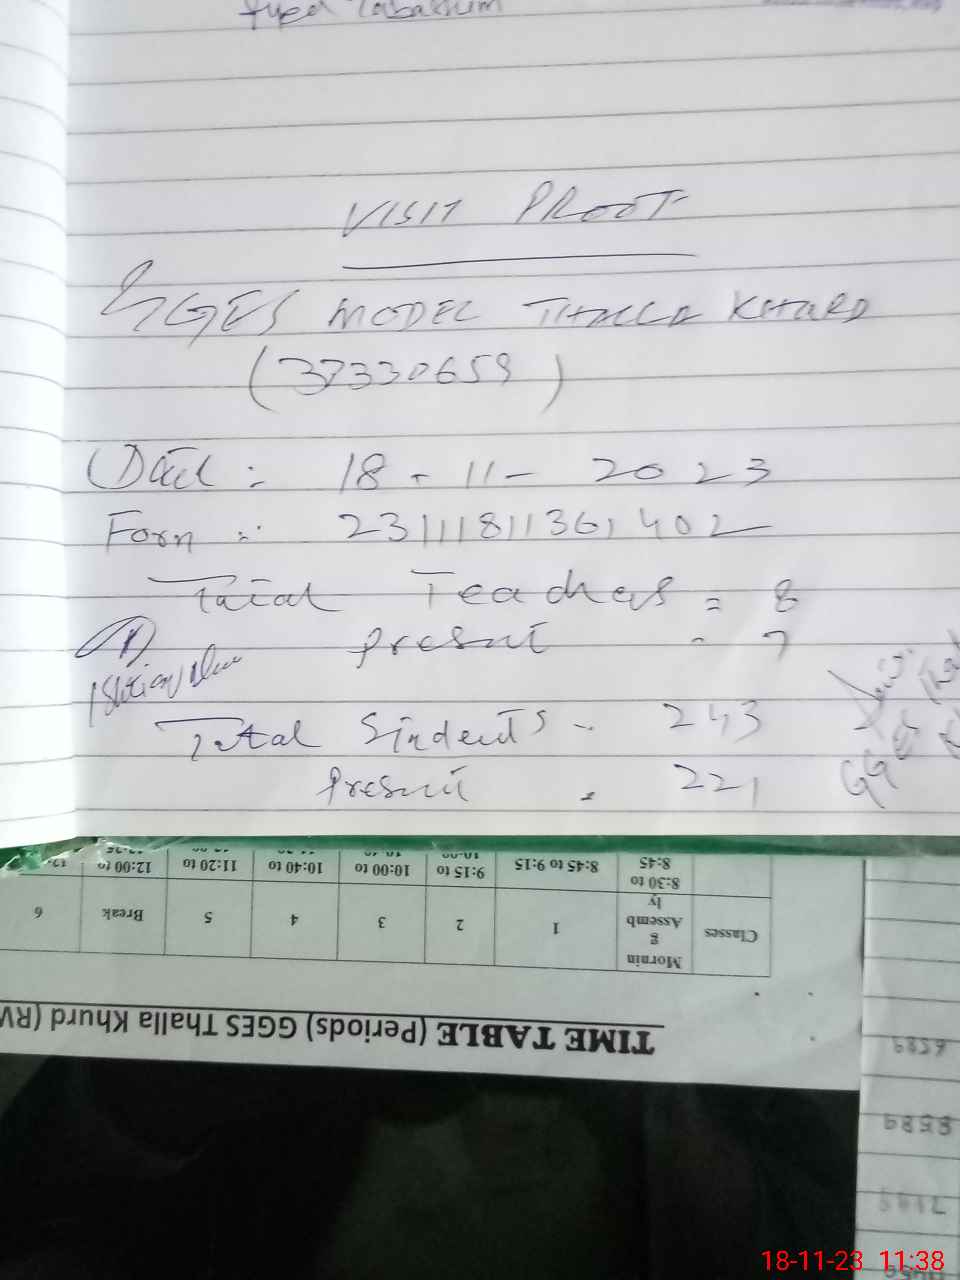 VISIT PROOF
GGES MODEL THALLA KHURD
(37330659)
Dated: 18-11-2023
Form: 231118113611402
Total Teachers = 8
Present - 7
Total Students - 243
Present - 221
GGES
12:00 to
11:20 to
10:40 to
10:00 to
9:15 to
8:45 to 9:15
8:30 to 8:45
6
Break
5
4
3
2
1
Mornin
g
Assemb
ly
Classes
TIME TABLE (Periods) GGES Thalla Khurd (RW
18-11-23 11:38